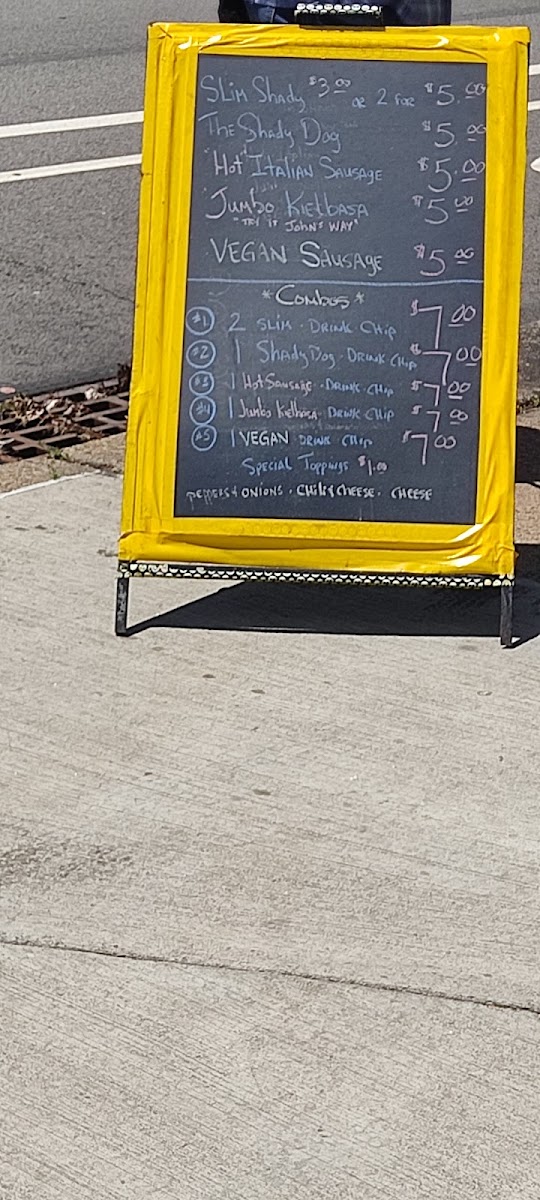 SLIM SHADY $3.00 OR 2 FOR $5.00
THE Shady Dog $5.00
"Hot" ITALIAN SAUSAGE $5.00
JUMBO KIELBASA $5.00
"TRY IT JOHN'S WAY"
VEGAN SAUSAGE $5.00
*Combos*
#1 2 SLIM · DRINK CHIP $7.00
#2 1 Shady Dog · DRINK CHIP $7.00
#3 1 Hot Sausage · DRINK · CHIP $7.00
#4 1 Jumbo Kielbasa · DRINK CHIP $7.00
#5 1 VEGAN DRINK CHIP $7.00
SPECIAL TOPPINGS $1.00
PEPPERS & ONIONS · CHILI & CHEESE · CHEESE